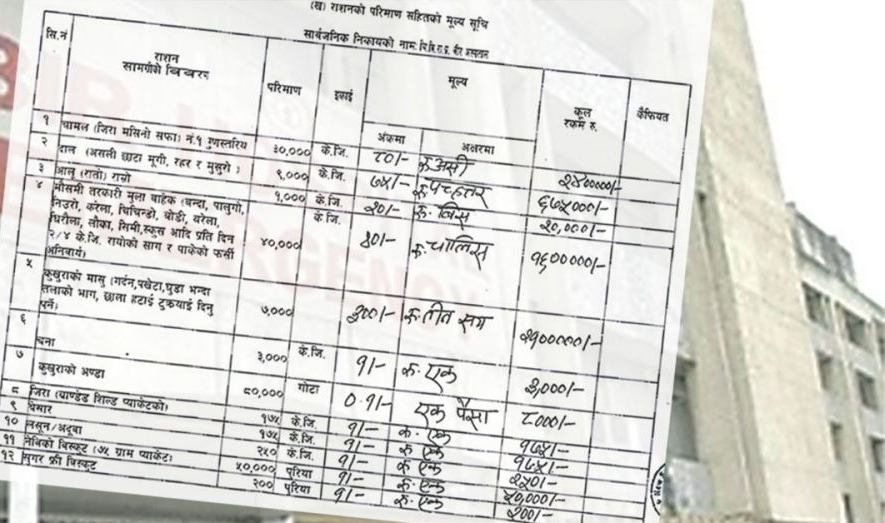 (ख) राशनको परिमाण सहितको मूल्य सूचि
सार्वजनिक निकायको नाम: चि.वि.रा.प्र. वीर अस्पताल
सि.नं राशन सामग्रीको विवरण परिमाण इकाई मूल्य कूल रकम रु. कैफियत
अंकमा अक्षरमा
१ चामल (जिरा मसिनो सफा) नं.१ गुणस्तरिय ३०,००० के.जि. ८०/- रु. असी २४०००००/-
२ दाल (असली छाटा मूगी, रहर र मुसुरो) ९,००० के.जि. ७५/- रु. पच्हत्तर ६७५०००/-
३ आलु (रातो) राम्रो १,००० के.जि. २०/- रु. विस २०,०००/-
४ मौसमी तरकारी मुला बाहेक (बन्दा, पालुगो,
निउरो, करेला, चिचिन्डो, बोडी, बरेला,
घिरौला, लौका, सिमी, स्कुस आदि प्रति दिन
२/४ के.जि. रायोको साग र पाकेको फर्सी
अनिवार्य) ४०,००० ४०/- रु. चालिस १६०००००/-
५ कुखुराको मासु (गर्दन, पखेटा, घुडा भन्दा
तलाको भाग, छाला हटाई टुक्र्याई दिनु
पर्ने) ७,००० ३००/- रु. तीन सय २१०००००/-
६ चना ३,००० के.जि. १/- रु. एक ३,०००/-
७ कुखुराको अण्डा ८०,००० गोटा ०.१/- एक पैसा ८०००/-
८ जिरा (ब्राण्डेड शिल्ड प्याकेटको) १७५ के.जि. १/- रु. एक १७५/-
९ बेसार १७५ के.जि. १/- रु. एक १७५/-
१० लसुन/अदुवा २५० के.जि. १/- रु. एक २५०/-
११ नेबिको बिस्कुट (७५ ग्राम प्याकेट) ५०,००० पुरिया १/- रु. एक ५०,०००/-
१२ सुगर फ्री बिस्कुट २०० पुरिया १/- रु. एक २००/-